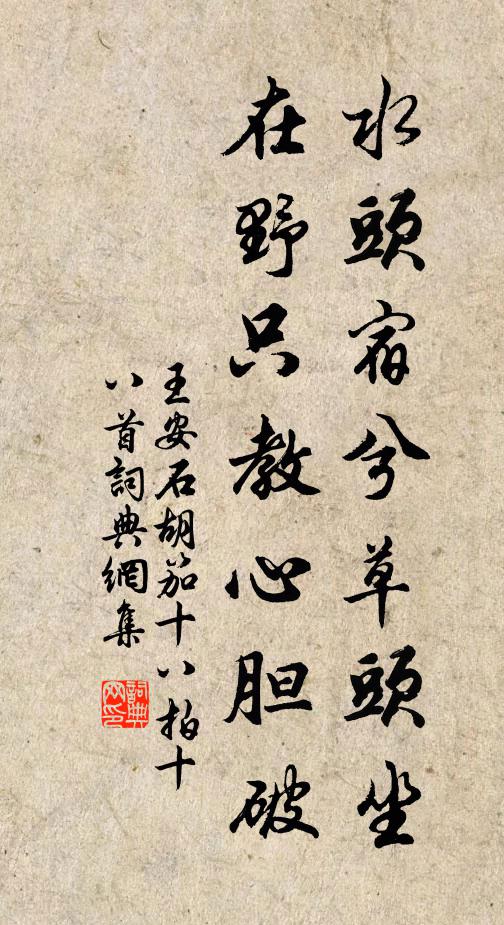 水頭宿兮草頭坐
在野只教心胆破
王安石胡笳十八拍十
八首詞典網集
詞典網印